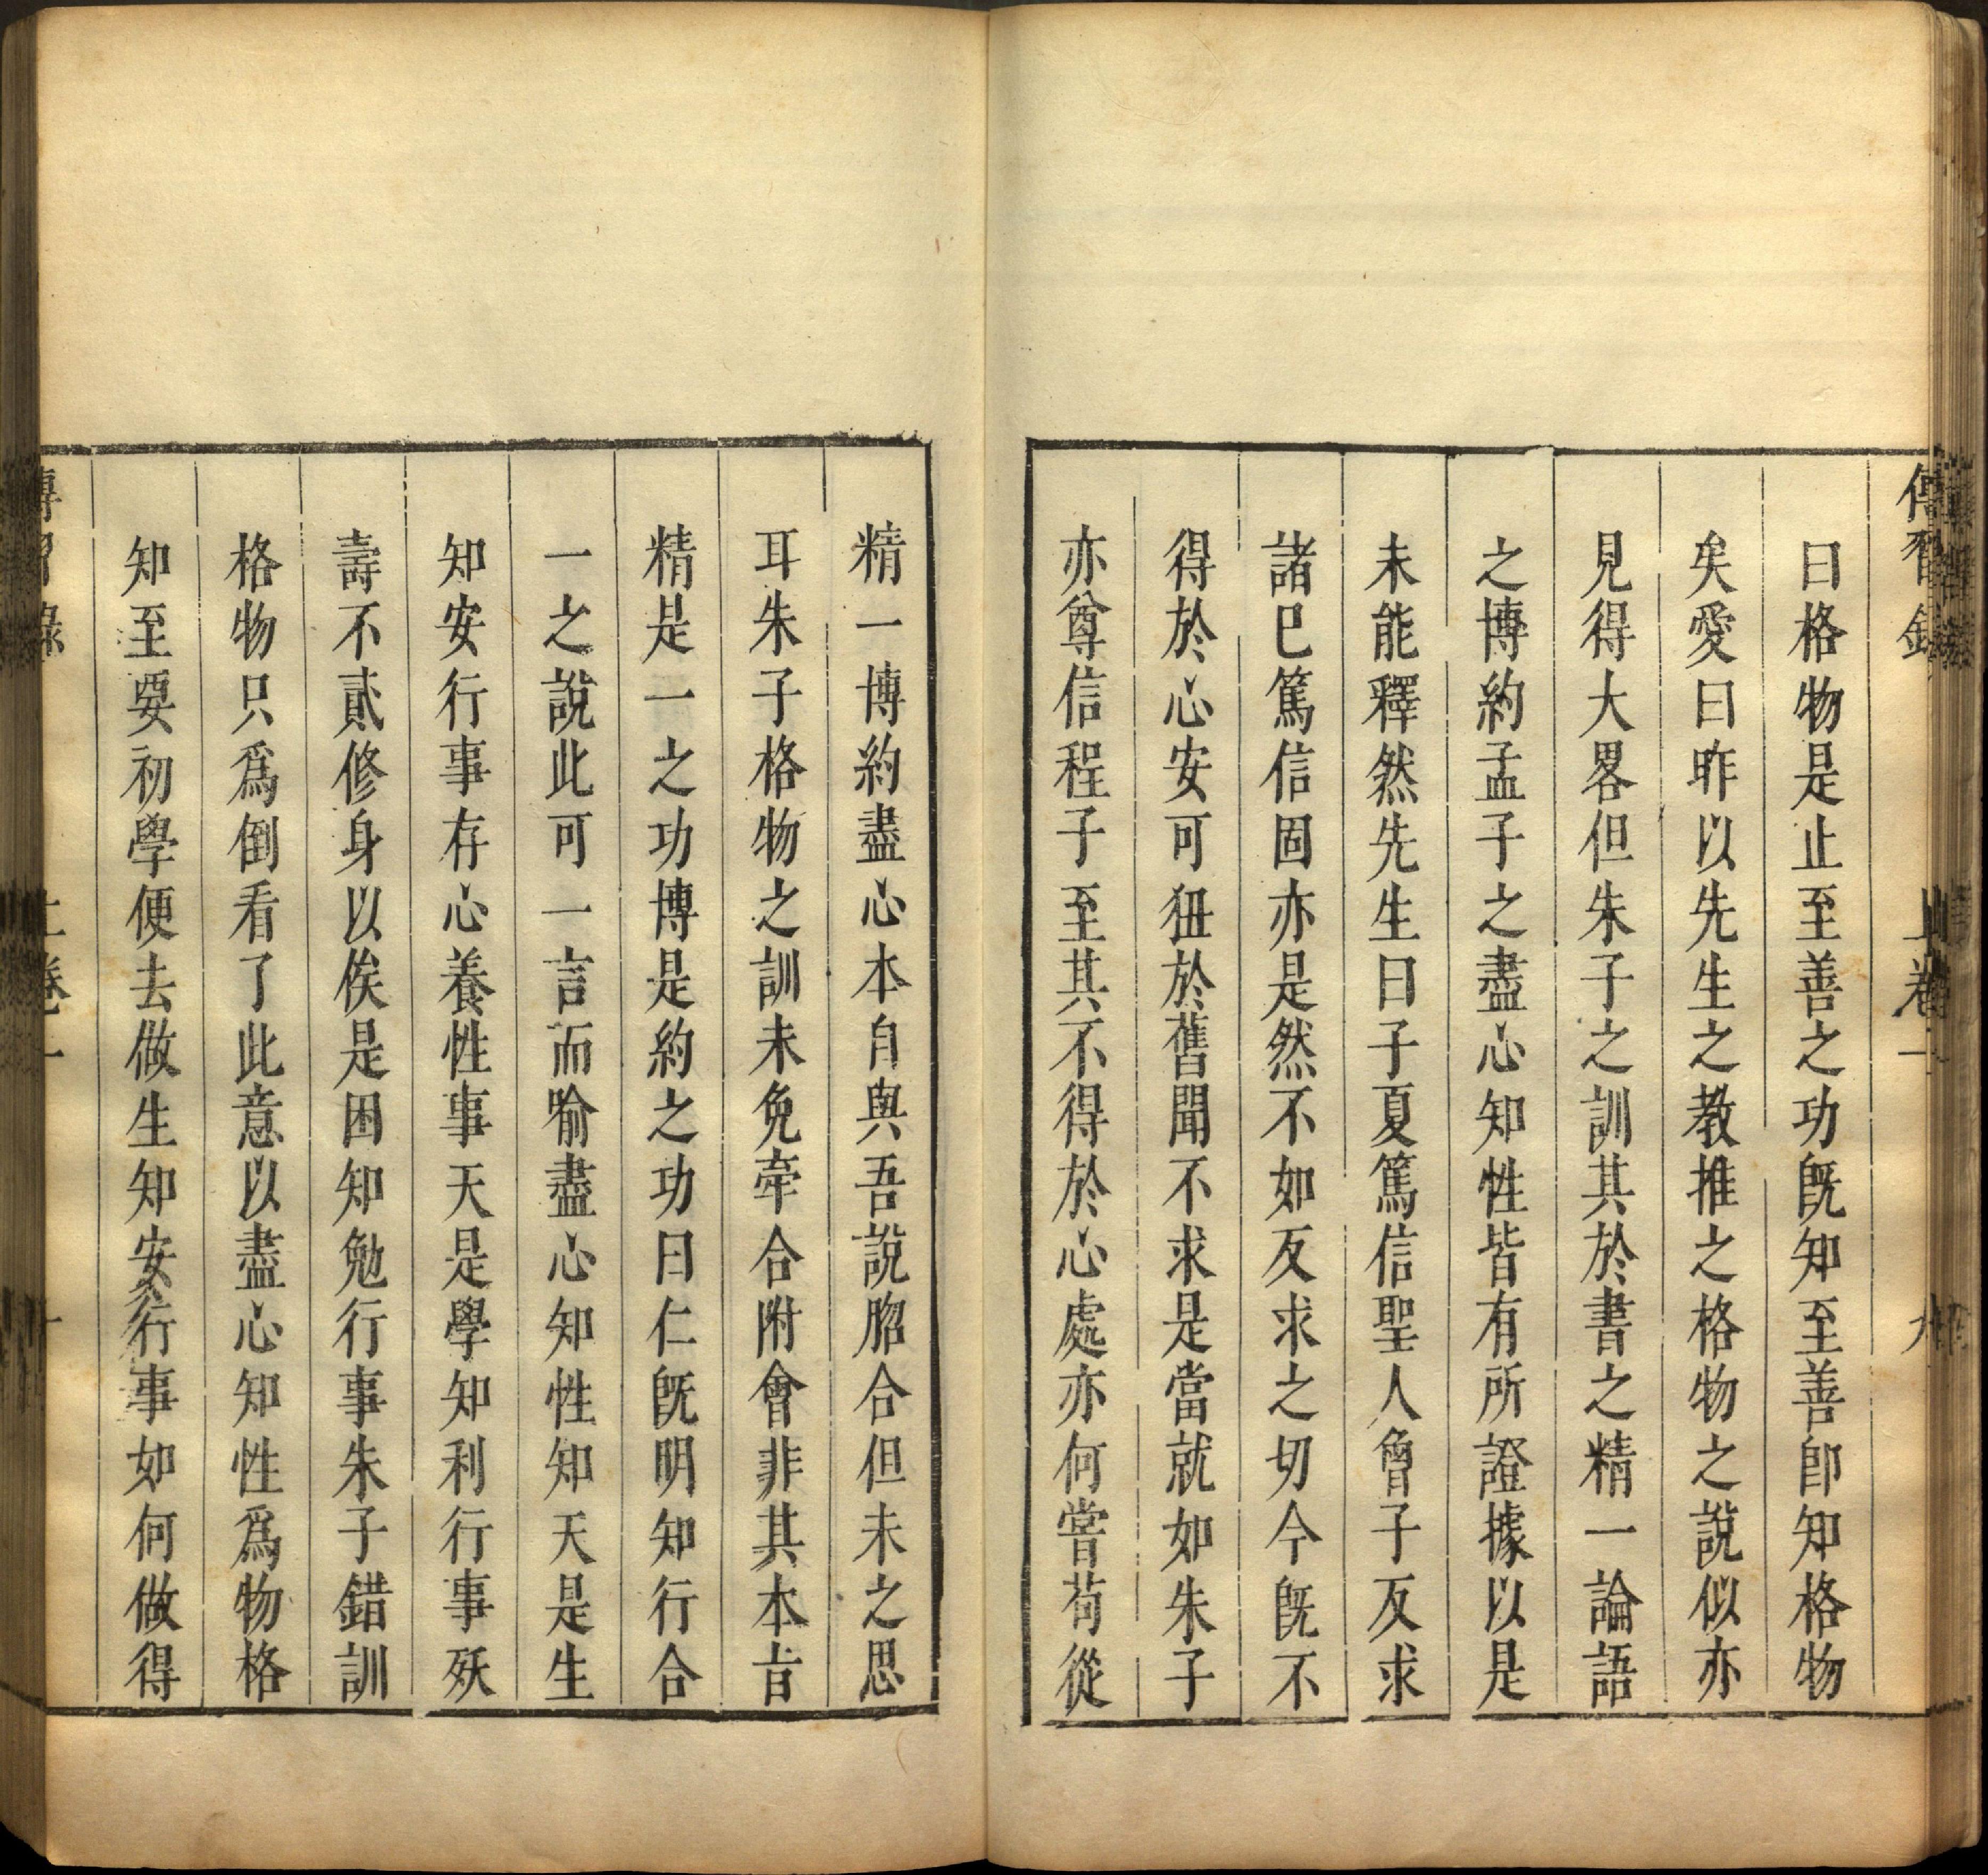 傳習錄 上卷一 九
曰格物是止至善之功旣知至善卽知格物
矣愛曰昨以先生之教推之格物之說似亦
見得大畧但朱子之訓其於書之精一論語
之博約孟子之盡心知性皆有所證據以是
未能釋然先生曰子夏篤信聖人曾子反求
諸已篤信固亦是然不如反求之切今旣不
得於心安可狃於舊聞不求是當就如朱子
亦尊信程子至其不得於心處亦何嘗苟從
精一博約盡心本自與吾說脗合但未之思
耳朱子格物之訓未免牽合附會非其本旨
精是一之功博是約之功曰仁旣明知行合
一之說此可一言而喻盡心知性知天是生
知安行事存心養性事天是學知利行事殀
壽不貳修身以俟是困知勉行事朱子錯訓
格物只爲倒看了此意以盡心知性爲物格
知至要初學便去做生知安行事如何做得
傳習錄 上卷一 十